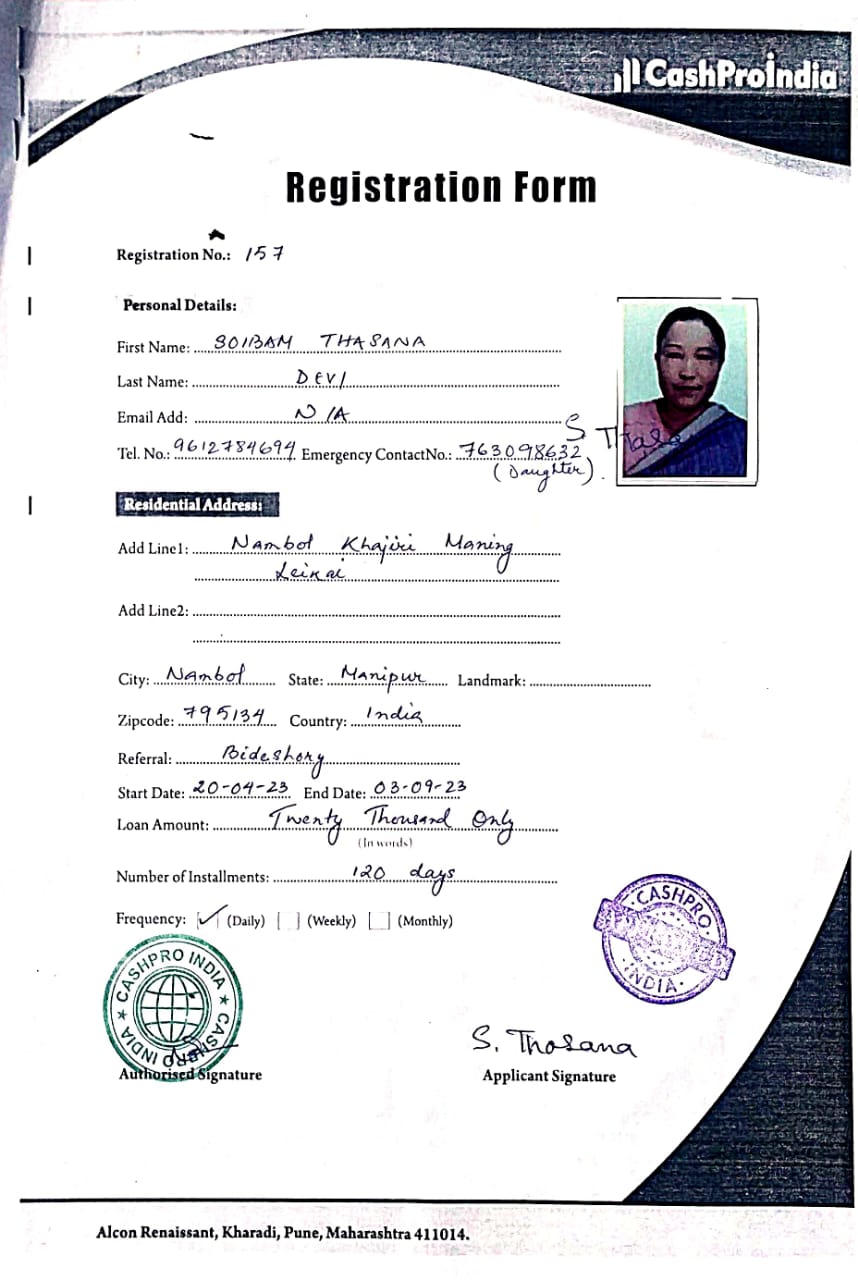 CashProIndia
Registration Form
Registration No.: 157
Personal Details:
First Name: SOIBAM THASANA
Last Name: DEVI
Email Add: N/A
S Thasa
Tel. No.: 9612784694 Emergency Contact No.: 763098632
(Daughter).
Residential Address:
Add Line1: Nambol Khajiri Maning
Leikai
Add Line2:
City: Nambol State: Manipur Landmark:
Zipcode: 795134 Country: India
Referral: Bideshory
Start Date: 20-04-23 End Date: 03-09-23
Loan Amount: Twenty Thousand Only
(In words)
Number of Installments: 120 days
Frequency: ✓ (Daily) (Weekly) (Monthly)
CASHPRO INDIA ★ CASHPRO INDIA ★
CASHPRO
INDIA
S. Thosana
Authorised Signature Applicant Signature
Alcon Renaissant, Kharadi, Pune, Maharashtra 411014.